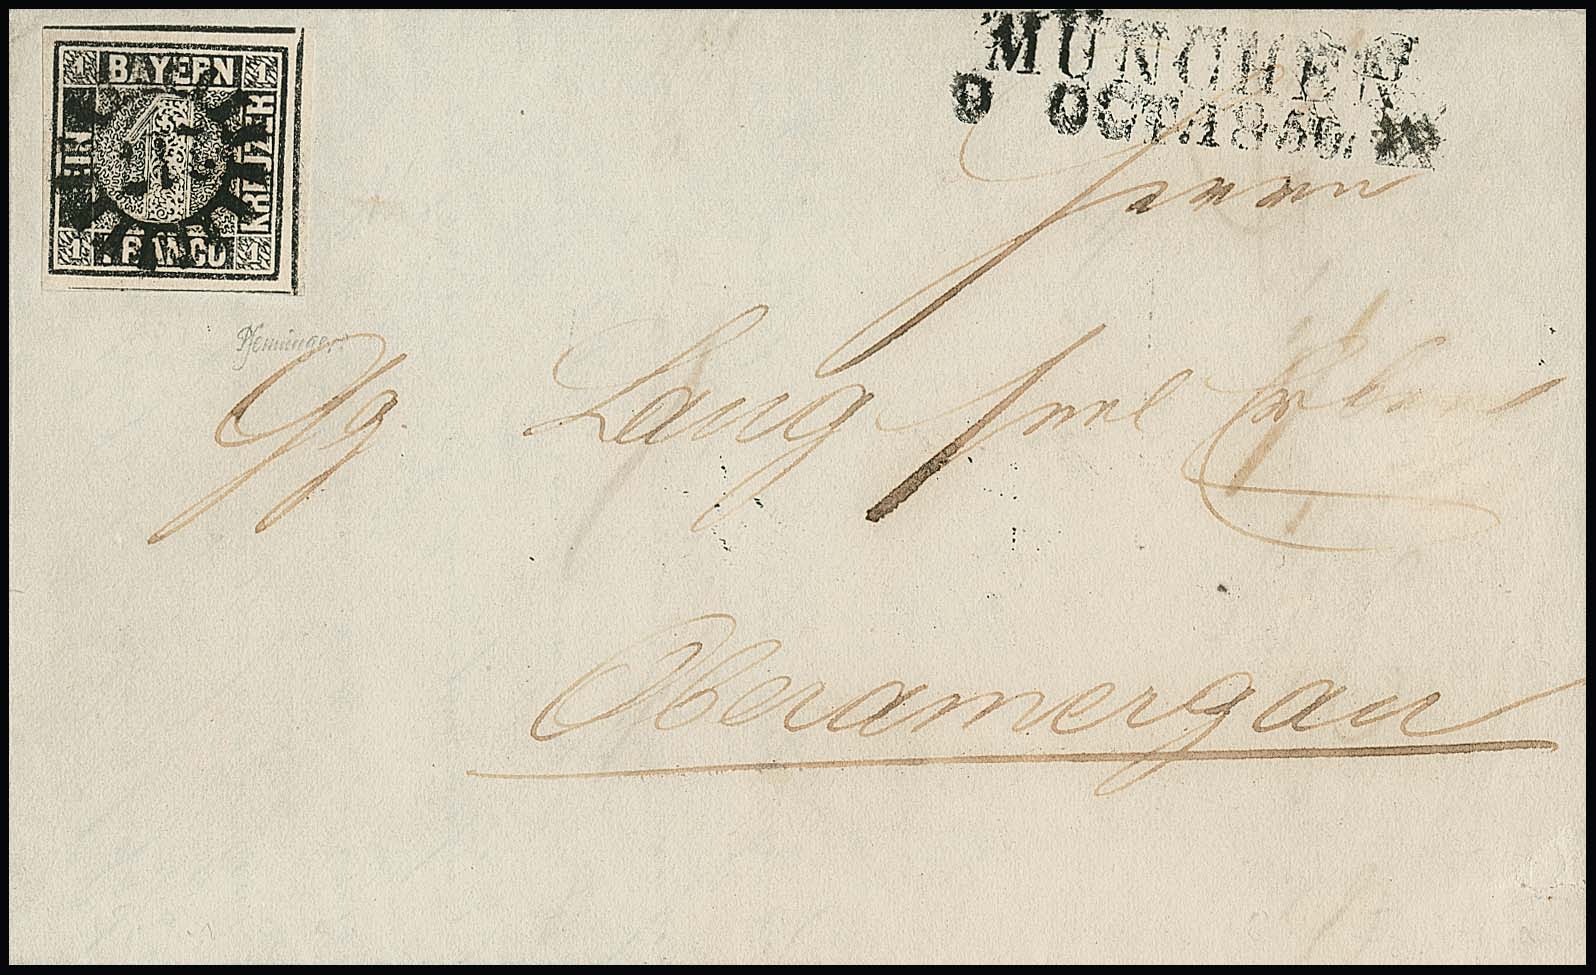 1 BAYERN 1
EIN
KREUZER
1 FRANCO 1
MÜNCHEN
9 OCT. 1850.
Pfenninger
Herrn
Gg. Lang seel Erben
Oberamergau